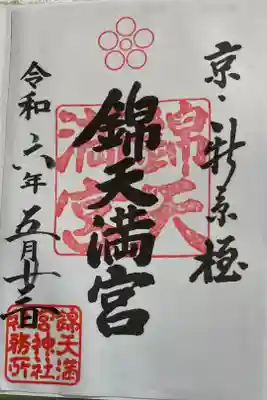 京・新京極
錦天満宮
錦天
満宮
令和六年五月
錦天満
宮神社
務所